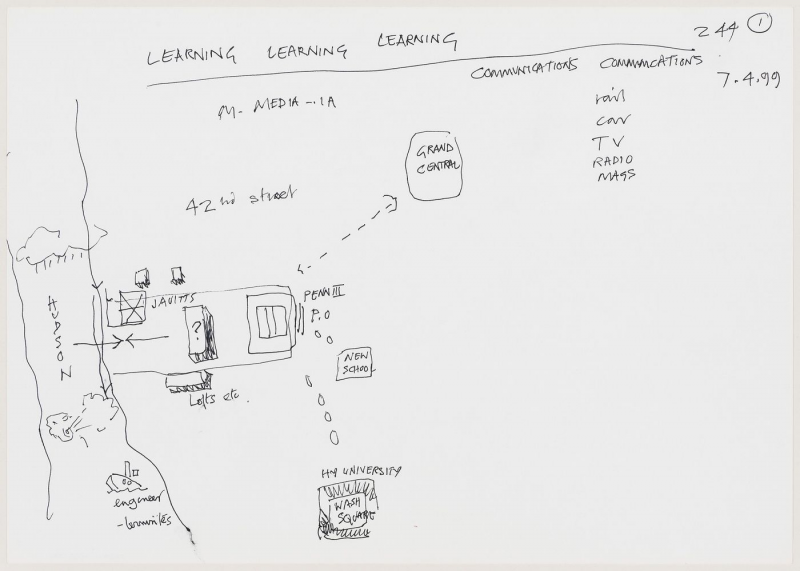 244 1
LEARNING LEARNING LEARNING
COMMUNICATIONS COMMUNICATIONS
7.4.99
M- MEDIA -·IA
rail
car
TV
RADIO
MAGS
GRAND
CENTRAL
42nd street
HUDSON
JAVITTS
PENN III
P.O
?
NEW
SCHOOL
Lofts etc.
NY UNIVERSITY
WASH
SQUARE
engineer